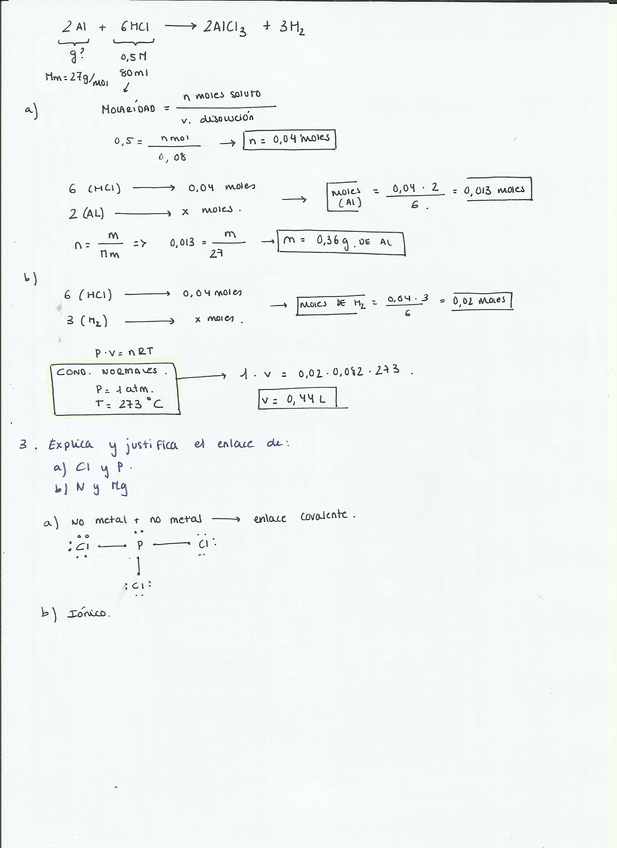 2 Al + 6 HCl ⟶ 2AlCl₃ + 3H₂
g? 0,5 M
Mm = 27 g/mol 80 ml
a) MOLARIDAD = n moles soluto / v. disolución
0,5 = n mol / 0,08 → n = 0,04 moles
6 (HCl) ⟶ 0,04 moles
2 (AL) ⟶ x moles.
→ moles (Al) = 0,04 · 2 / 6. = 0,013 moles
n = m / Mm => 0,013 = m / 27 → m = 0,36 g. DE AL
b)
6 (HCl) ⟶ 0,04 moles
3 (H₂) ⟶ x moles.
→ MOLES DE H₂ = 0,04 · 3 / 6 = 0,02 MOLES
P · V = n R T
COND. NORMALES. → 1 · V = 0,02 · 0,082 · 273.
P = 1 atm.
T = 273 °C
V = 0,44 L
3. Explica y justifica el enlace de:
a) Cl y P.
b) N y Mg
a) No metal + no metal ⟶ enlace covalente.
:Cl — P — Cl:
:Cl:
b) Iónico.